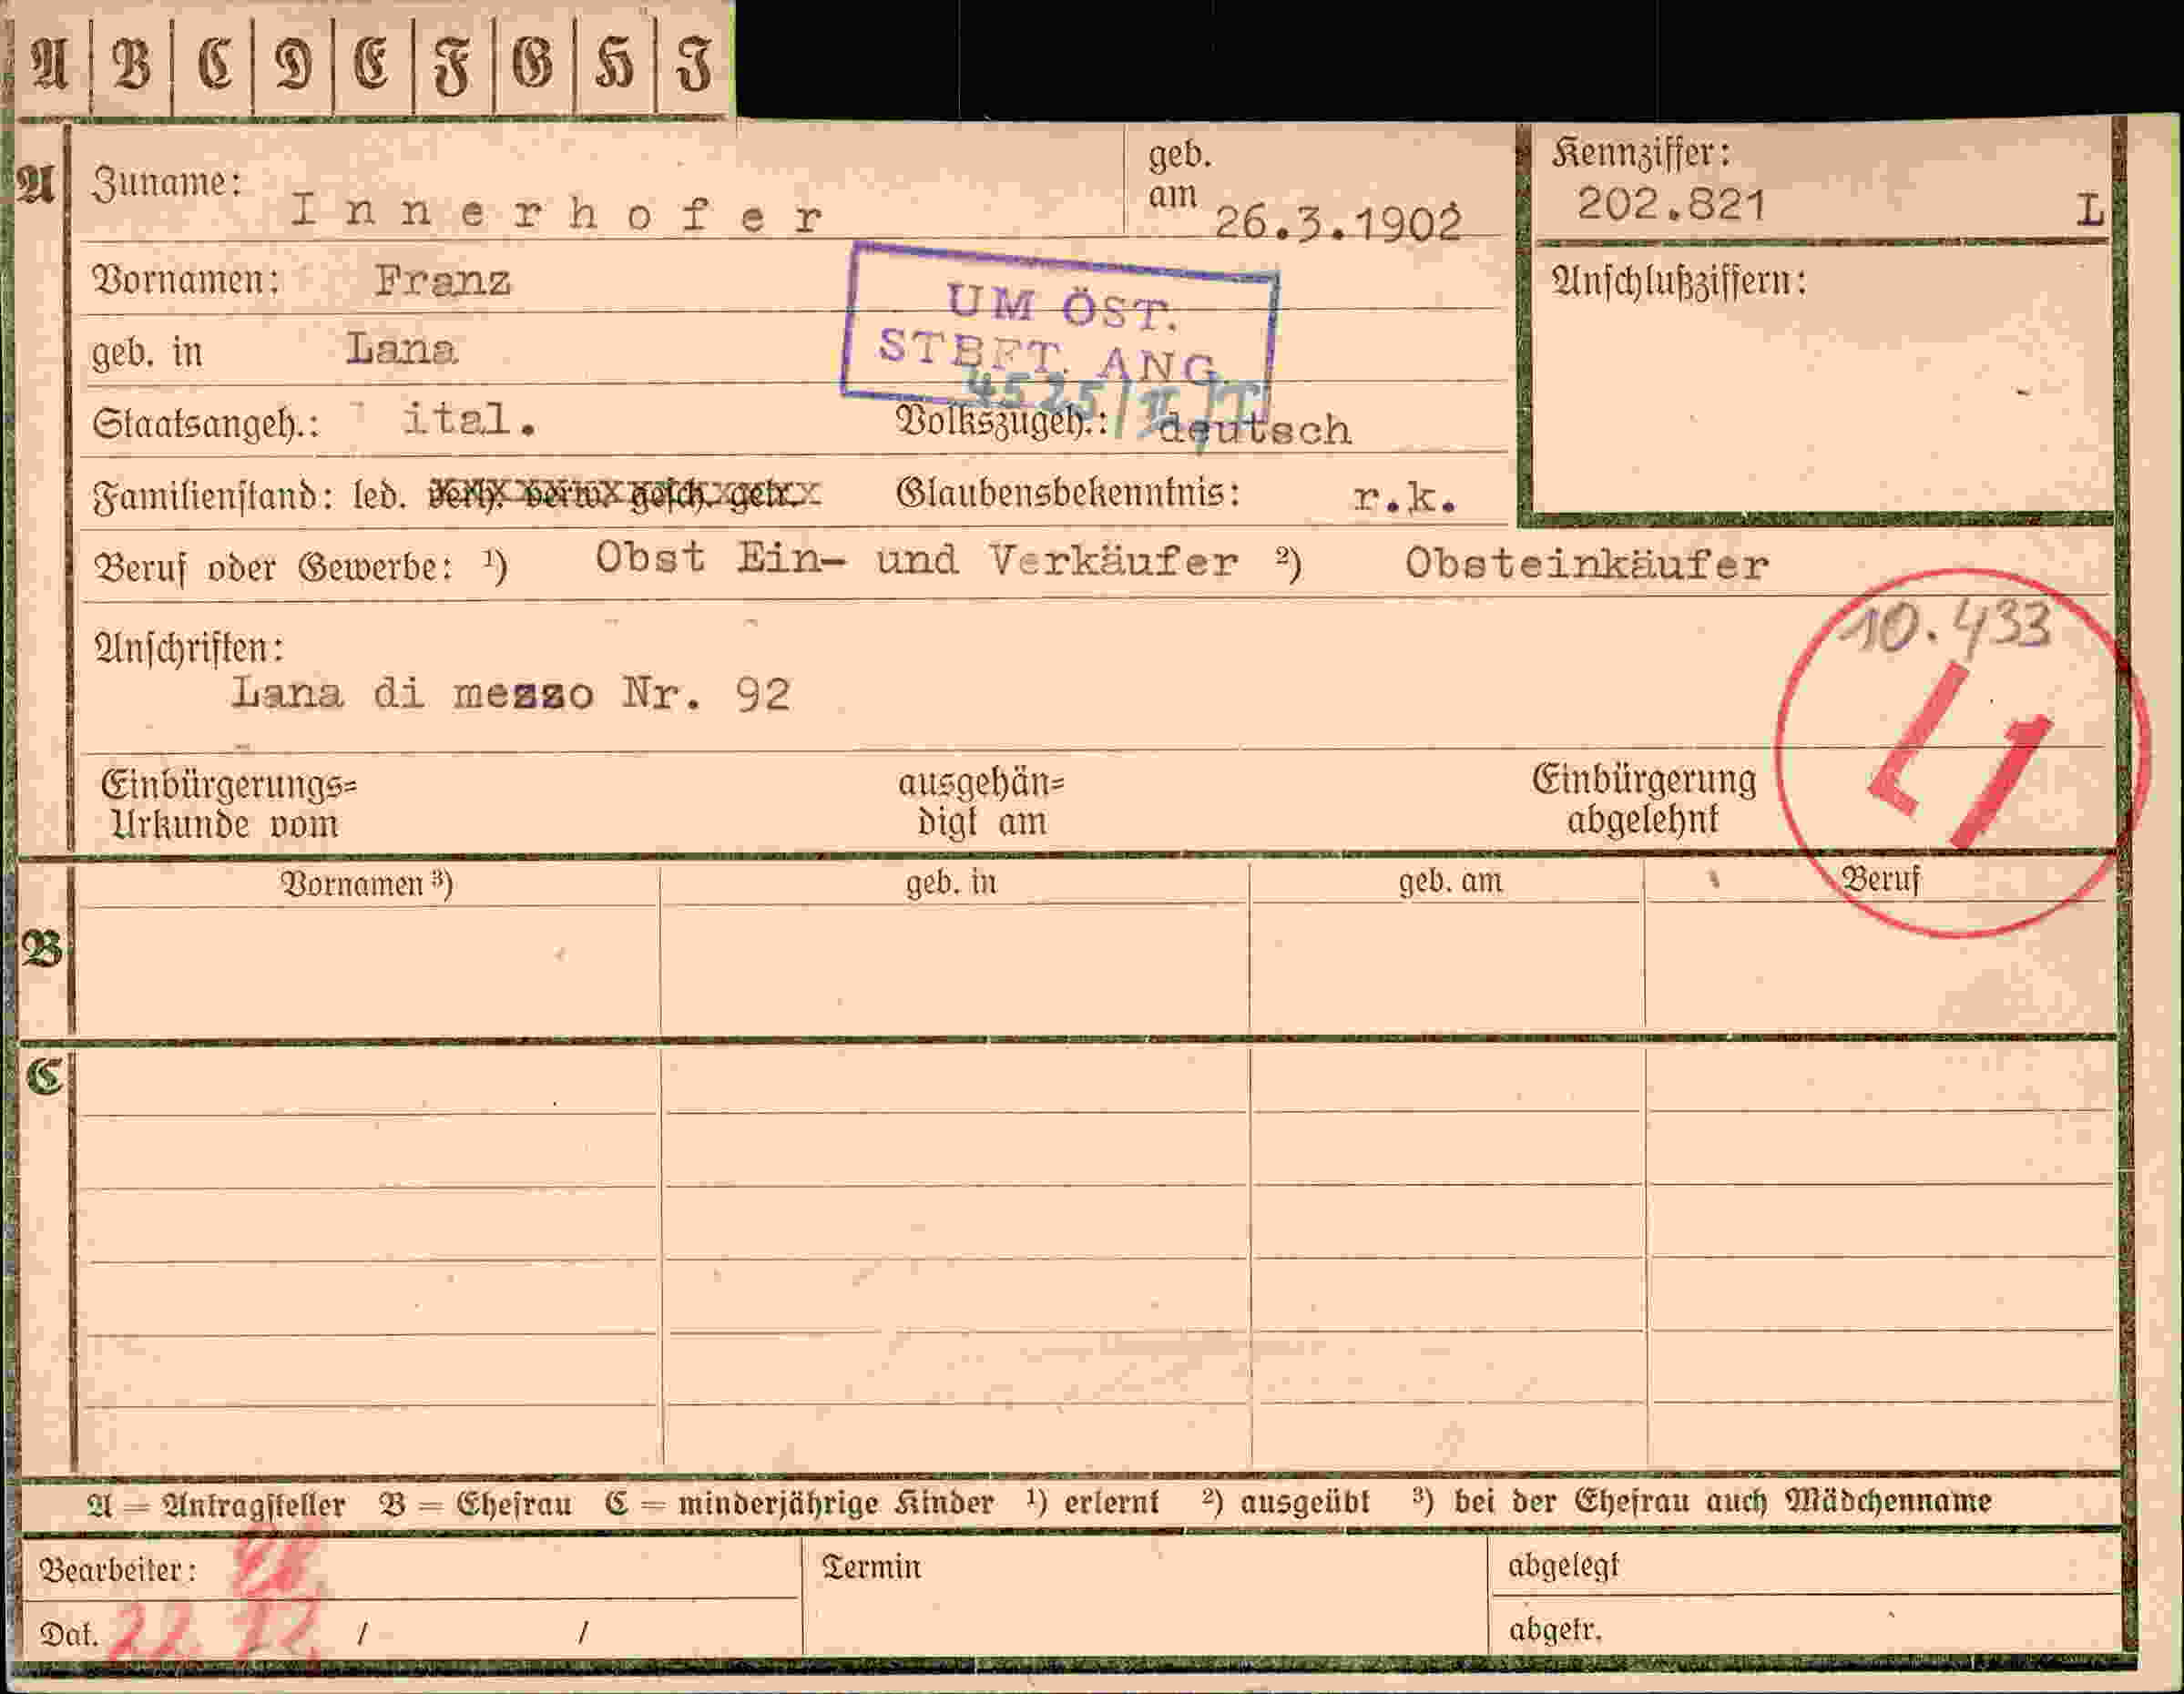 A B C D E F G H I
A Zuname: Innerhofer geb. am 26.3.1902 Kennziffer: 202.821 L
Vornamen: Franz UM ÖST. Anschlußziffern:
geb. in Lana STBFT. ANG.
4525/II/T
Staatsangeh.: ital. Volkszugeh.: deutsch
Familienstand: led. verh. verw. gesch. getr. Glaubensbekenntnis: r.k.
Beruf oder Gewerbe: ¹) Obst Ein- und Verkäufer ²) Obsteinkäufer
10.433
Anschriften:
Lana di mezzo Nr. 92
L1
Einbürgerungs= ausgehän= Einbürgerung
Urkunde vom digt am abgelehnt
Vornamen ³) geb. in geb. am Beruf
B
C
A = Antragsteller B = Ehefrau C = minderjährige Kinder ¹) erlernt ²) ausgeübt ³) bei der Ehefrau auch Mädchenname
Bearbeiter: Termin abgelegt
Dat. / / abgetr.